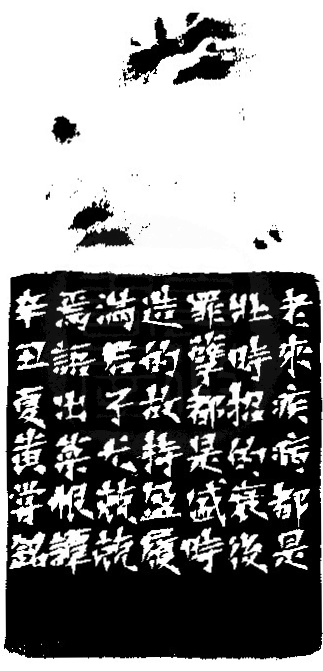 老來疾病都是
壯時招的衰後
罪孽都是盛時
造的故持盈履
滿君子尤兢兢
焉語出菜根譚
辛丑夏黃嘗銘